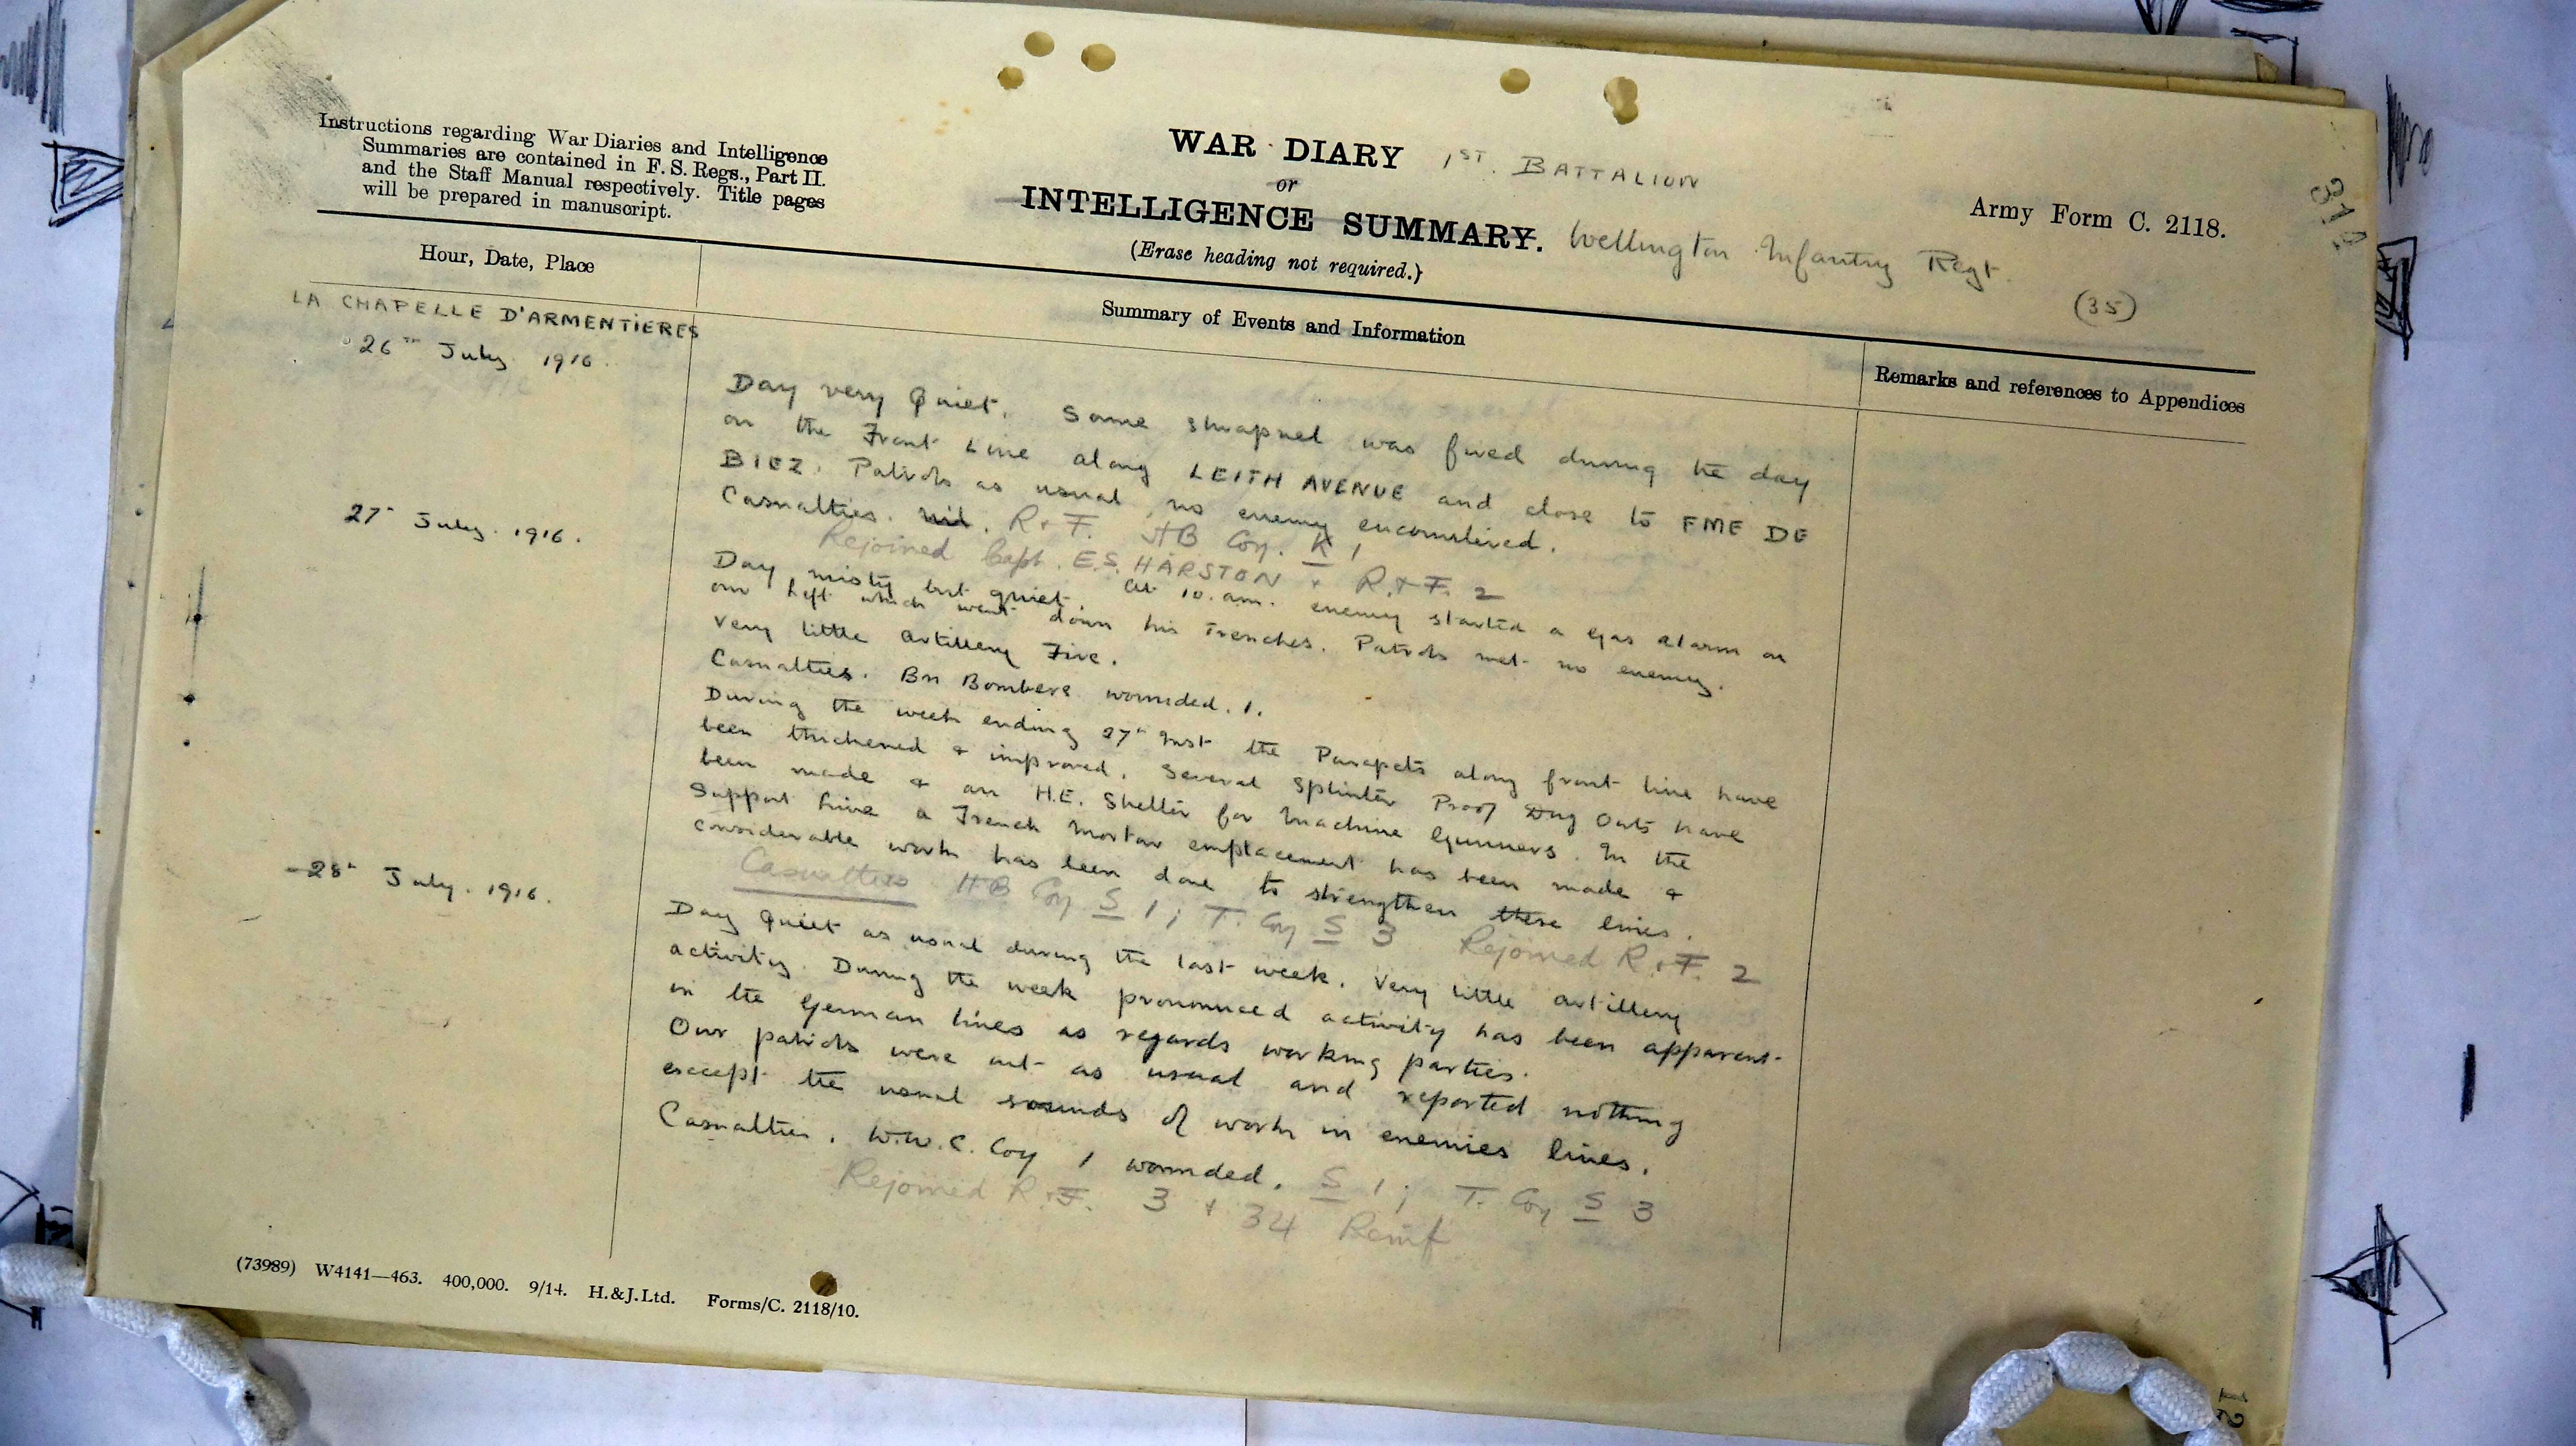 Instructions regarding War Diaries and Intelligence
Summaries are contained in F. S. Regs., Part II.
and the Staff Manual respectively. Title pages
will be prepared in manuscript.
WAR DIARY 1ST. BATTALION
or
INTELLIGENCE SUMMARY. Wellington Infantry Regt.
(Erase heading not required.)
Army Form C. 2118.
(35)
Hour, Date, Place
Summary of Events and Information
Remarks and references to Appendices
LA CHAPELLE D'ARMENTIERES
26th July 1916.
Day very Quiet. Some shrapnel was fired during the day
on the Front Line along LEITH AVENUE and close to FME DE
BIEZ. Patrols as usual, no enemy encountered.
Casualties. nil. R & F. HB Coy. K 1
Rejoined Capt. E.S. HARSTON & R. & F. 2
27th July. 1916.
Day misty but quiet. At 10. am. enemy started a gas alarm on
our left which went down his Trenches. Patrols met no enemy.
Very little Artillery Fire.
Casualties. Bn Bombers wounded. 1.
During the week ending 27th Inst the Parapets along front line have
been thickened & improved. Several Splinter Proof Dug Outs have
been made & an H.E. Shelter for Machine Gunners. In the
Support Line a Trench Mortar emplacement has been made &
considerable work has been done to strengthen these lines.
Casualties HB Coy S 1; T. Coy S 3 Rejoined R. & F. 2
28th July. 1916.
Day Quiet as usual during the last week. Very little artillery
activity. During the week pronounced activity has been apparent
in the German lines as regards working parties.
Our patrols were out as usual and reported nothing
except the usual sounds of work in enemies lines.
Casualties. W.W.C. Coy 1 wounded. S 1; T. Coy S 3
Rejoined R. & F. 3 & 34 Reinf
(73989) W4141—463. 400,000. 9/14. H.&J.Ltd. Forms/C. 2118/10.